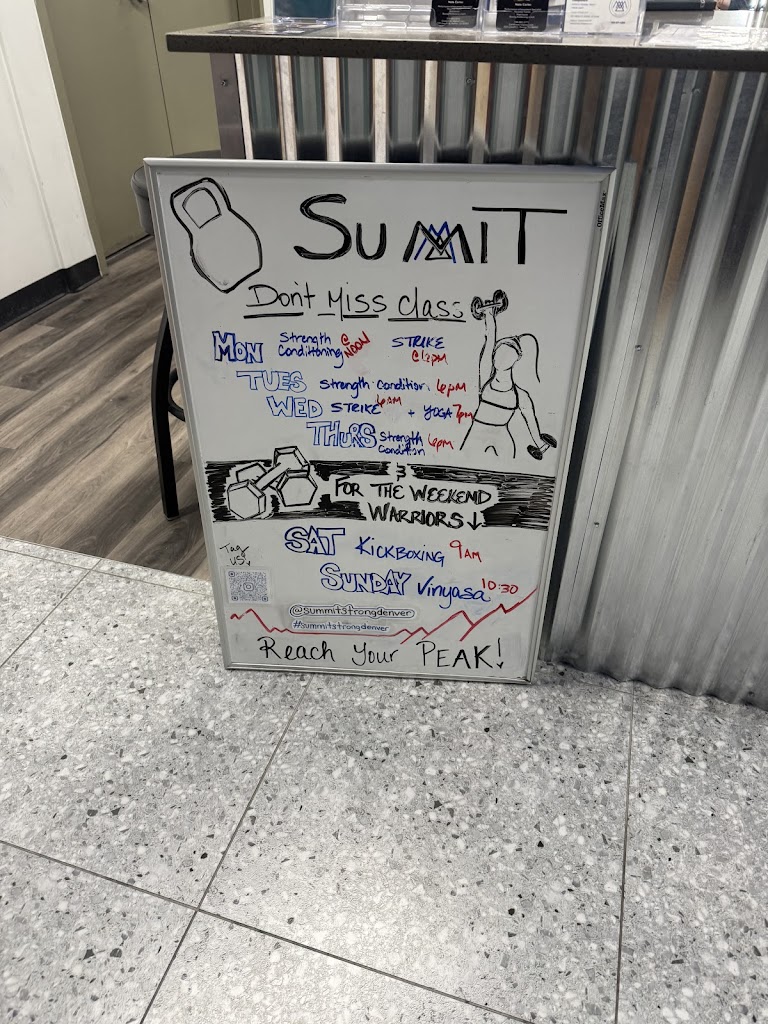 SUMMIT
Don't Miss class
MON Strength Conditioning @ NOON STRIKE
TUES Strength Condition. 6pm
WED STRIKE + YOGA 7pm
THURS Strength Condition 6pm
&
FOR THE WEEKEND
WARRIORS ↓
SAT KICKBOXING 9AM
Tag
US↓
SUNDAY Vinyasa 10:30
@summitstrongdenver
#summitstrongdenver
Reach Your PEAK!